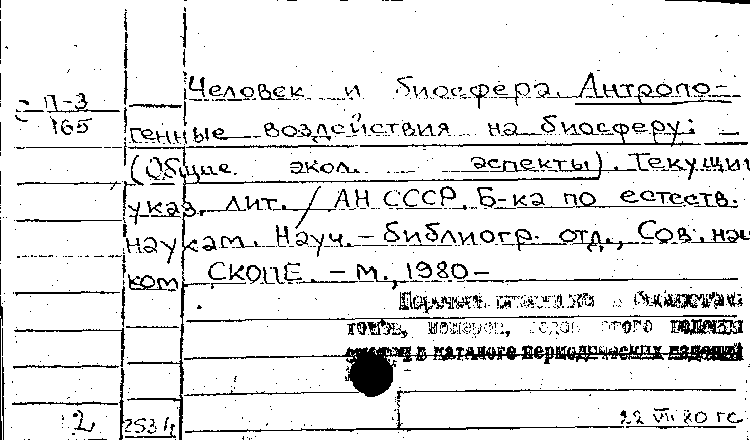 П-3
165
Человек и биосфера. Антропо-
генные воздействия на биосферу:
(Общие экол. аспекты). Текущий
указ. лит. / АН СССР. Б-ка по естеств.
наукам. Науч.-библиогр. отд., Сов. нац
ком. СКОПЕ. - М., 1980-
томов, номеров, годов этого
в каталоге периодических изданий
2 253/2 22 VII 80 ГС